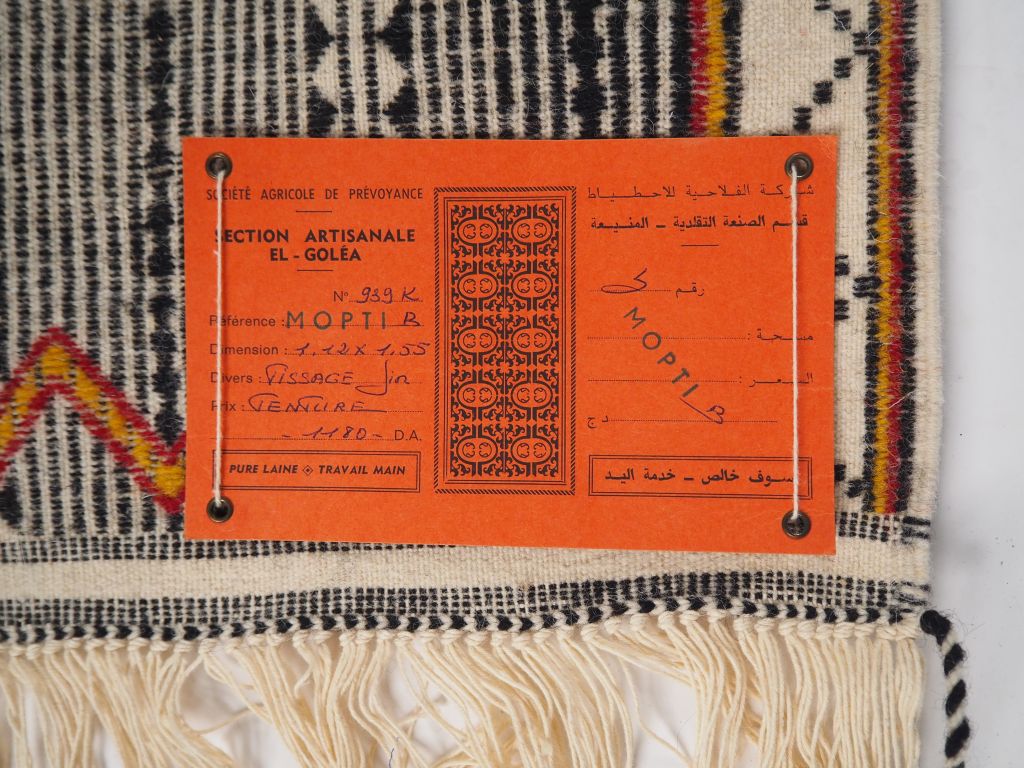 SOCIÉTÉ AGRICOLE DE PRÉVOYANCE
SECTION ARTISANALE
EL - GOLÉA
N° 939 K
Référence : MOPTI B
Dimension : 1,12 x 1,55
Divers : TISSAGE fin
Prix : TENTURE
- 1180 - D.A.
PURE LAINE ◈ TRAVAIL MAIN
شركة الفلاحية للاحطياط
قسم الصنعة التقلدية - المنيعة
رقم
MOPTI B
مسحة :
السعر :
د ج
صوف خالص - خدمة اليد